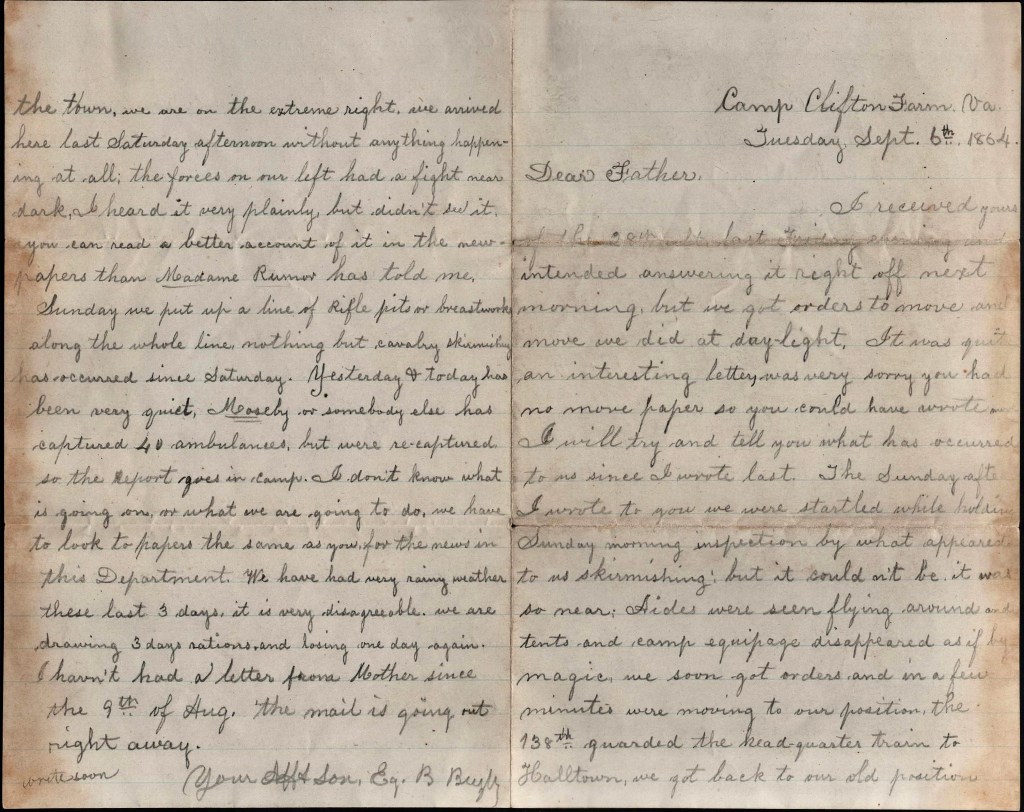 Camp Clifton Farm. Va.
Tuesday, Sept. 6th. 1864.
Dear Father,
I received yours
of the 28th ult. last Friday evening and
intended answering it right off next
morning, but we got orders to move and
move we did at day-light. It was quite
an interesting letter, was very sorry you had
no more paper so you could have wrote more
I will try and tell you what has occurred
to us since I wrote last. The Sunday after
I wrote to you we were startled while holding
Sunday morning inspection by what appeared
to us skirmishing; but it could n't be. it was
so near; Aides were seen flying around and
tents and camp equipage disappeared as if by
magic, we soon got orders and in a few
minutes were moving to our position, the
138th guarded the head-quarter train to
Halltown, we got back to our old position
the town, we are on the extreme right. we arrived
here last Saturday afternoon without anything happen-
ing at all; the forces on our left had a fight near
dark, I heard it very plainly, but didn't see it.
you can read a better account of it in the news-
papers than Madame Rumor has told me.
Sunday we put up a line of Rifle pits or breastworks
along the whole line, nothing but cavalry skirmishing
has occurred since Saturday. Yesterday & today has
been very quiet, Moseby or somebody else has
captured 40 ambulances, but were re-captured
so the report goes in camp. I don't know what
is going on, or what we are going to do, we have
to look to papers the same as you, for the news in
this Department. We have had very rainy weather
these last 3 days, it is very disagreeable. we are
drawing 3 days rations and losing one day again.
I havn't had a letter from Mother since
the 9th of Aug. the mail is going out
right away.
write soon
Your Afft Son, B